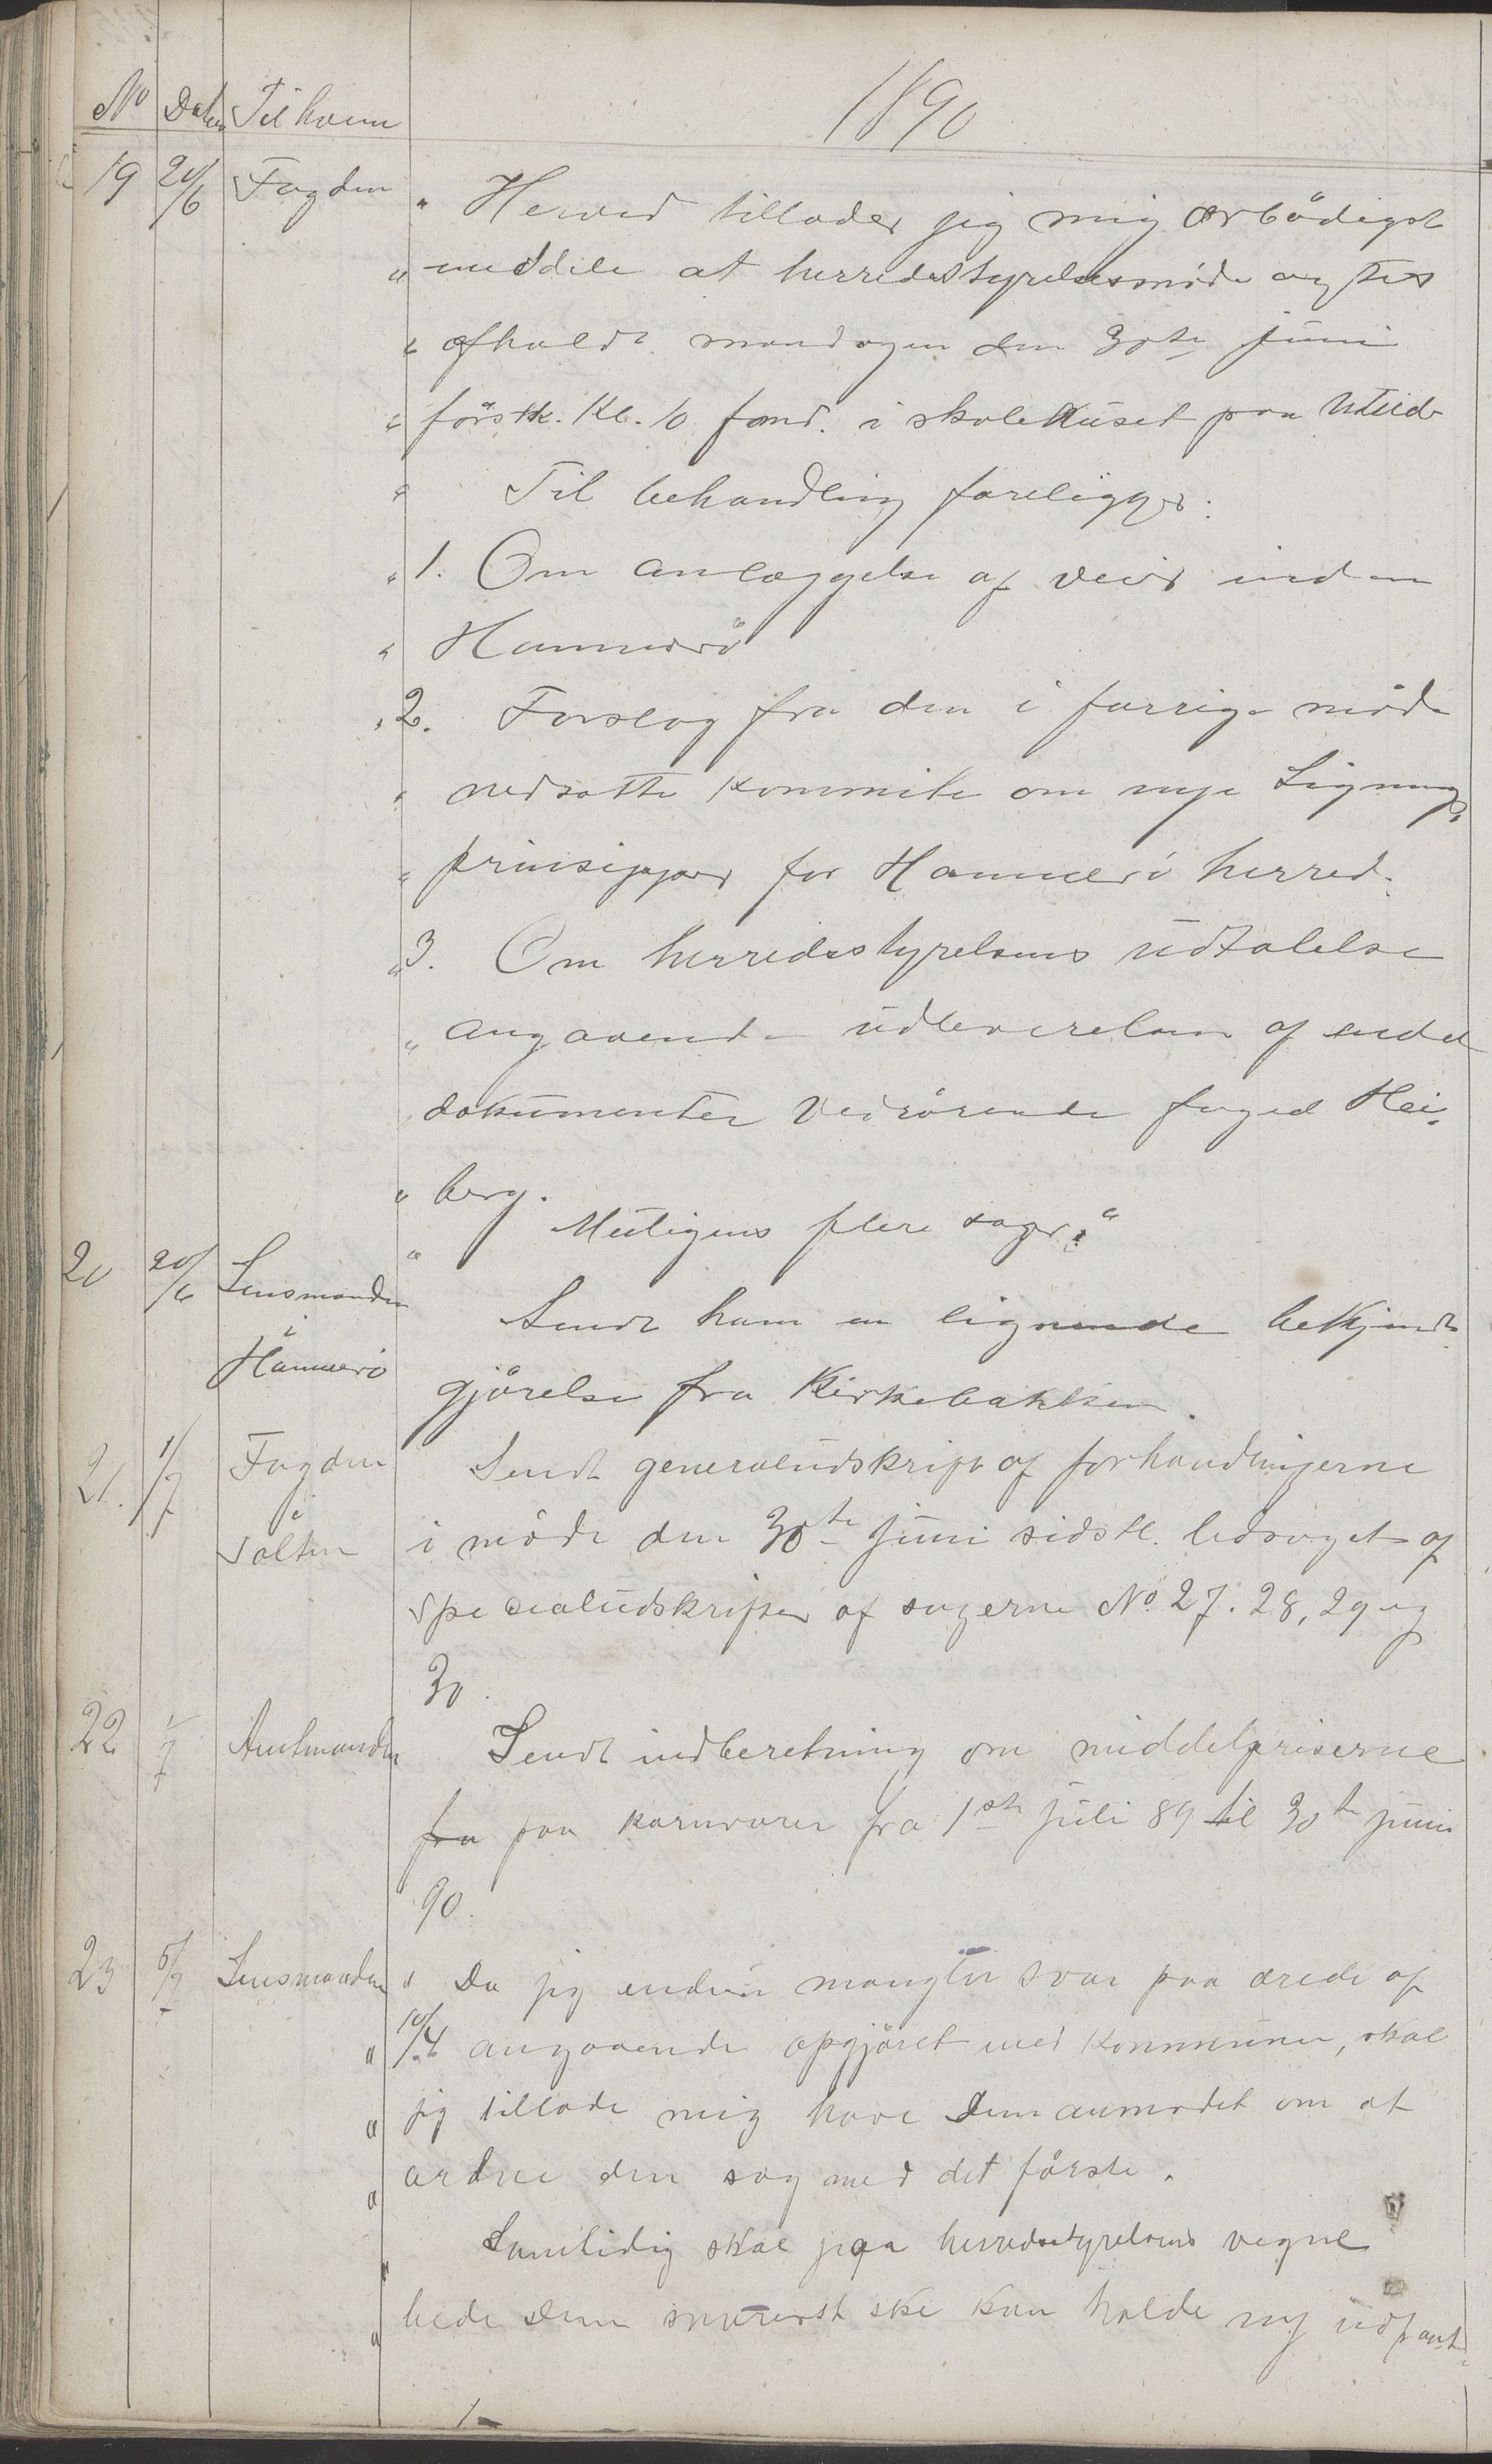 1890
No Datum Til hvem
19 20/6 Fogden
" Herved tillader jeg mig ærbödigst
" meddele at herredsstyrelsesmöde agtes
" afholdt mandagen den 30te juni
" förstk. Kl. 10 formd. i skolehuset paa
" Til behandling foreligger:
" 1. Om anlæggelse af veier inden
" Hammerö
" 2. Forslag fra den i forrige möde
" nedsatte kommite om nye Lignings
" prinsipper for Hammerö herred.
" 3. Om herredsstyrelsens üdtalelse
" angaaende üdleverelsen af endel
dokümenter vedrörende foged Hei-
" berg.
" Muligens flere sager."
20 20/6 Lensmanden i Hammerö
Sendt ham en lignende bekjendt
gjörelse fra Kirkebakken.
21. 1/7 Fogden i Salten
Sendt generalüdskrift af forhandlingerne
i möde den 30te juni sidstl. ledsaget af
specialüdskrifter af sagerne No 27. 28, 29 og
30.
22 1/7 Amtmanden
Sendt indberetning om middelpriserne
fra paa kornvarer fra 1ste juli 89 til 30te juni
90.
23 5/7 Lensmanden
" Da jeg endnü mangler svar paa ærede af
" 10/4 angaaende opgjöret med kommünen, skal
" jeg tillade mig have Dem anmodet om at
" ordne den sag med det förste.
" Samtidig skal jeg paa herredsstyrelsens vegne
" bede Dem snarest ske kan holde ny üdpant-